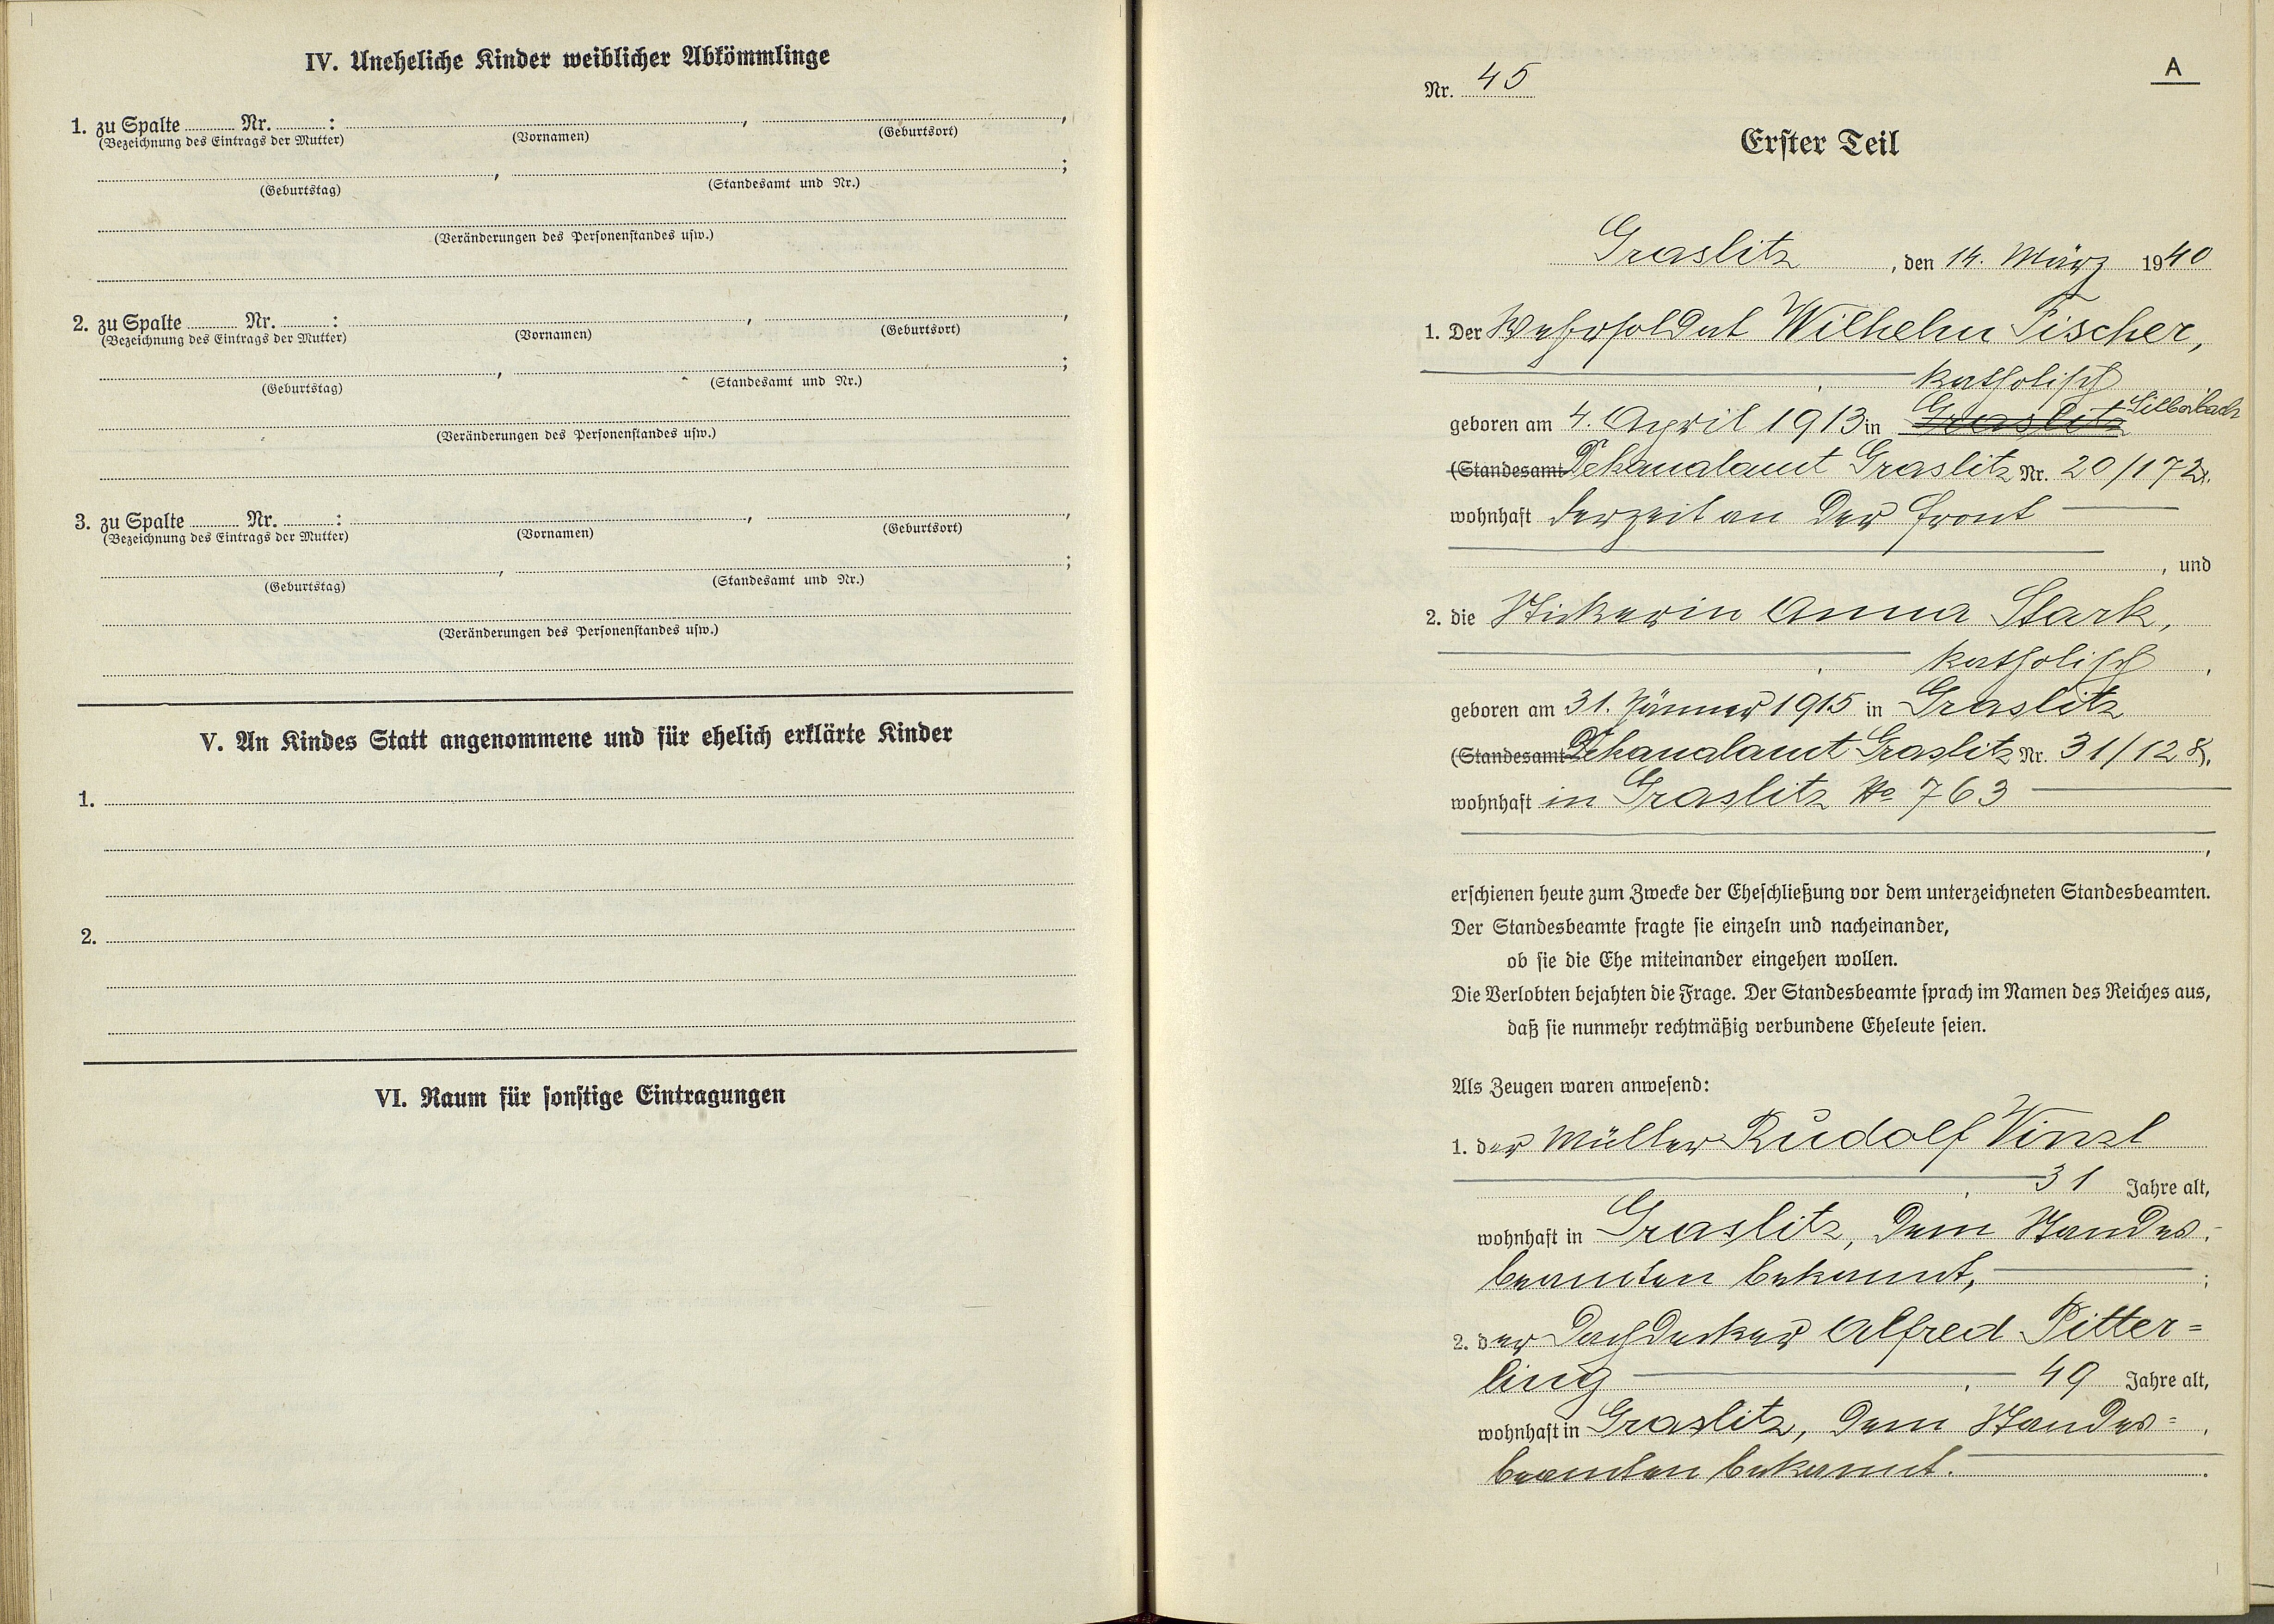 IV. Uneheliche Kinder weiblicher Abkömmlinge
1. zu Spalte ........ Nr. ........ : ........ , ........ ,
(Bezeichnung des Eintrags der Mutter) (Vornamen) (Geburtsort)
........ , ........ ;
(Geburtstag) (Standesamt und Nr.)
(Veränderungen des Personenstandes usw.)
2. zu Spalte ........ Nr. ........ : ........ , ........ ,
(Bezeichnung des Eintrags der Mutter) (Vornamen) (Geburtsort)
........ , ........ ;
(Geburtstag) (Standesamt und Nr.)
(Veränderungen des Personenstandes usw.)
3. zu Spalte ........ Nr. ........ : ........ , ........ ,
(Bezeichnung des Eintrags der Mutter) (Vornamen) (Geburtsort)
........ , ........ ;
(Geburtstag) (Standesamt und Nr.)
(Veränderungen des Personenstandes usw.)
V. An Kindes Statt angenommene und für ehelich erklärte Kinder
1.
2.
VI. Raum für sonstige Eintragungen
A
Nr. 45
Erster Teil
Graslitz, den 14. März 1940
1. Der Wehrsoldat Wilhelm Fischer,
katholisch
geboren am 4. April 1913 in Graslitz Silberbach
(Standesamt Dekanalamt Graslitz Nr. 20/172),
wohnhaft derzeit an der Front
, und
2. die Stickerin Anna Stark,
katholisch,
geboren am 31. Jänner 1915 in Graslitz
(Standesamt Dekanalamt Graslitz Nr. 31/128),
wohnhaft in Graslitz No 763
,
erschienen heute zum Zwecke der Eheschließung vor dem unterzeichneten Standesbeamten.
Der Standesbeamte fragte sie einzeln und nacheinander,
ob sie die Ehe miteinander eingehen wollen.
Die Verlobten bejahten die Frage. Der Standesbeamte sprach im Namen des Reiches aus,
daß sie nunmehr rechtmäßig verbundene Eheleute seien.
Als Zeugen waren anwesend:
1. der Müller Rudolf Vinzl
, 31 Jahre alt,
wohnhaft in Graslitz, dem Standes-
beamten bekannt, ;
2. der Dachdecker Alfred Pitter=
ling , 49 Jahre alt,
wohnhaft in Graslitz, dem Standes=
beamten bekannt.